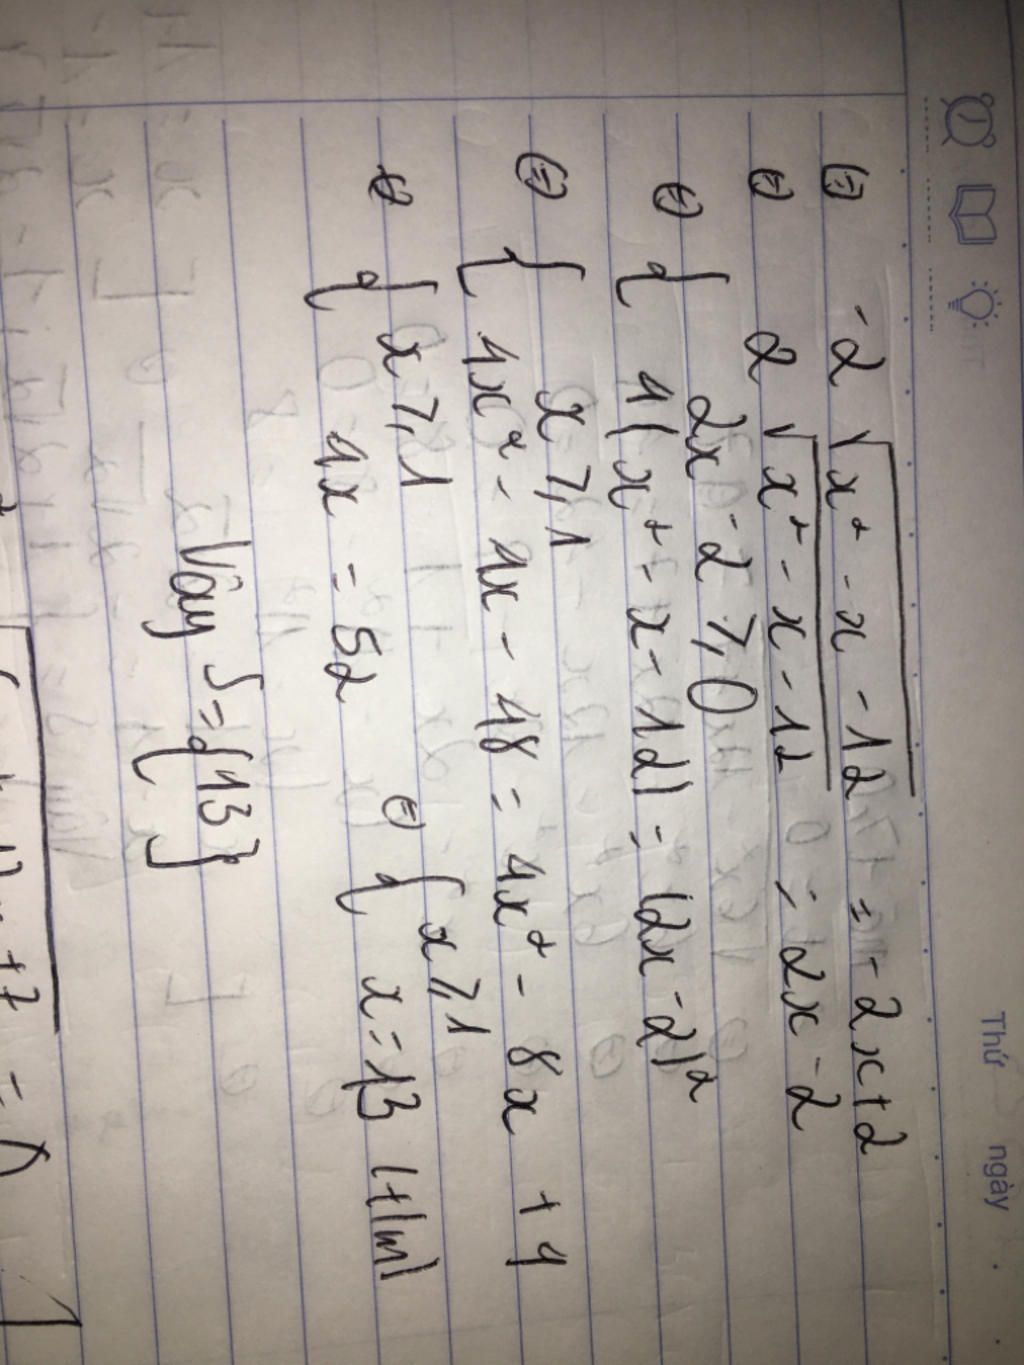 Thứ ngày
⇔ -2√(x² - x - 12) = -2x + 2
⇔ 2√(x² - x - 12) = 2x - 2
⇔ { 2x - 2 ≥ 0
4(x² - x - 12) = (2x - 2)²
⇔ { x ≥ 1
4x² - 4x - 48 = 4x² - 8x + 4
⇔ { x ≥ 1 ⇔ { x ≥ 1
4x = 52 x = 13 (t/m)
Vậy S = {13}